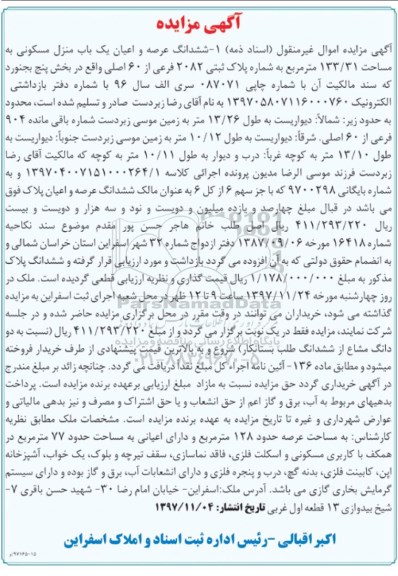 آگهی مزایده
آگهی مزایده اموال غیرمنقول (اسناد ذمه) ۱-ششدانگ عرصه و اعیان یک باب منزل مسکونی به
مساحت ۱۳۳/۳۱ مترمربع به شماره پلاک ثبتی ۲۰۸۲ فرعی از ۶۰ اصلی واقع در بخش پنج بجنورد
که سند مالکیت آن با شماره چاپی ۰۸۷۰۷۱ سری الف سال ۹۶ با شماره دفتر بازداشتی
الکترونیک ۱۳۹۷۰۵۸۰۷۱۱۶۰۰۰۷۶۰ به نام آقای رضا زبردست صادر و تسلیم شده است، محدود
به حدود زیر: شمالاً: دیواریست به طول ۱۳/۲۶ متر به زمین موسی زبردست شماره باقی مانده ۹۰۴
فرعی از ۶۰ اصلی. شرقاً: دیواریست به طول ۱۰/۱۲ متر به زمین موسی زبردست جنوباً: دیواریست به
طول ۱۳/۱۰ متر به کوچه غرباً: درب و دیوار به طول ۱۰/۱۱ متر به کوچه که مالکیت آقای رضا
زبردست فرزند موسی الرضا مدیون پرونده اجرائی کلاسه ۱۳۹۷۰۴۰۰۷۱۵۱۰۰۰۲۶۴/۱ و
شماره بایگانی ۹۷۰۰۲۹۸ که با جز سهم ۶ از کل ۶ به عنوان مالک ششدانگ عرصه و اعیان پلاک فوق
می باشد در قبال مبلغ چهارصد و یازده میلیون و دویست و نود و سه هزار و دویست و بیست
ریال ۴۱۱/۲۹۳/۲۲۰ ریال اصل طلب خانم هاجر حسن پور مقدم موضوع سند نکاحیه
شماره ۱۶۴۱۸ مورخه ۱۳۸۷/۰۹/۰۶ دفتر ازدواج شماره ۳۲ شهر اسفراین استان خراسان شمالی و
به انضمام حقوق دولتی که به آن افزوده می گردد بازداشت و مورد ارزیابی قرار گرفته و ششدانگ پلاک
مذکور به مبلغ ۱/۱۷۸/۰۰۰/۰۰۰ ریال قیمت گذاری و نظریه ارزیابی قطعی گردیده است. ملک در
روز چهارشنبه مورخه ۱۳۹۷/۱۱/۲۴ ساعت ۹ تا ۱۲ ظهر در محل شعبه اجرای ثبت اسفراین به مزایده
گذاشته می شود، خریداران می توانند در وقت مقرر در محل برگزاری مزایده حاضر شده و در جلسه
شرکت نمایند، مزایده فقط در یک نوبت برگزار می گردد و از مبلغ ۴۱۱/۲۹۳/۲۲۰ ریال (نسبت به دو
دانگ مشاع از ششدانگ طلب بستانکار) شروع و به بالاترین قیمت پیشنهادی از طرف خریدار فروخته
میشود و مطابق ماده ۱۳۶- آئین نامه اجراء کل مبلغ نقداً دریافت می گردد. چنانچه زائد بر مبلغ مندرج
در آگهی خریداری گردد حق مزایده نسبت به مازاد مبلغ ارزیابی برعهده برنده مزایده است. پرداخت
بدهیهای مربوط به آب، برق و گاز اعم از حق انشعاب و یا حق اشتراک و مصرف و نیز بدهی مالیاتی و
عوارض شهرداری و غیره تا تاریخ مزایده به عهده برنده مزایده است. مشخصات ملک مطابق نظریه
کارشناس: به مساحت عرصه حدود ۱۲۸ مترمربع و دارای اعیانی به مساحت حدود ۷۷ مترمربع در
همکف با کاربری مسکونی و اسکلت فلزی، فاقد نماسازی، سقف تیرچه و بلوک، یک خواب، آشپزخانه
اپن، کابینت فلزی، بدنه گچ، درب و پنجره فلزی و دارای انشعابات آب، برق و گاز بوده و دارای سیستم
گرمایش بخاری گازی می باشد. آدرس ملک:اسفراین- خیابان امام رضا ۳۰- شهید حسن باقری ۷-
شیخ بیدوازی ۱۳ قطعه اول غربی تاریخ انتشار: ۱۳۹۷/۱۱/۰۴
اکبر اقبالی -رئیس اداره ثبت اسناد و املاک اسفراین